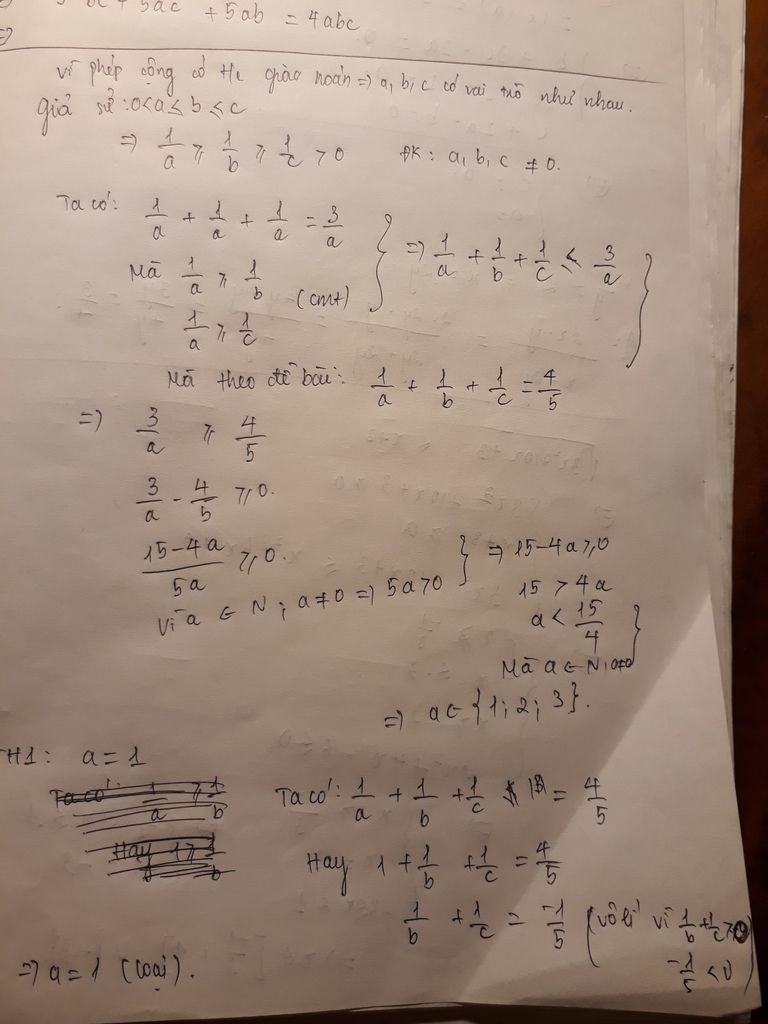 + 5ac + 5ab = 4abc
=>
Vì phép cộng có t/c giao hoán => a, b, c có vai trò như nhau.
Giả sử: 0<a ≤ b ≤ c
=> 1/a ≥ 1/b ≥ 1/c > 0 ĐK: a, b, c ≠ 0.
Ta có: 1/a + 1/a + 1/a = 3/a
Mà 1/a ≥ 1/b (cmt)
1/a ≥ 1/c
} => 1/a + 1/b + 1/c ≤ 3/a }
Mà theo đề bài: 1/a + 1/b + 1/c = 4/5
=> 3/a ≥ 4/5
3/a - 4/5 ≥ 0.
(15-4a)/5a ≥ 0.
Vì a ∈ N; a≠0 => 5a>0
} => 15-4a ≥ 0
15 > 4a
a < 15/4
Mà a ∈ N, a≠0 }
=> a ∈ {1; 2; 3}.
TH1: a = 1
Ta có: 1/a + 1/b + 1/c = 4/5
Hay 1 + 1/b + 1/c = 4/5
1/b + 1/c = -1/5 (vô lí vì 1/b + 1/c > 0
-1/5 < 0)
=> a = 1 (loại).